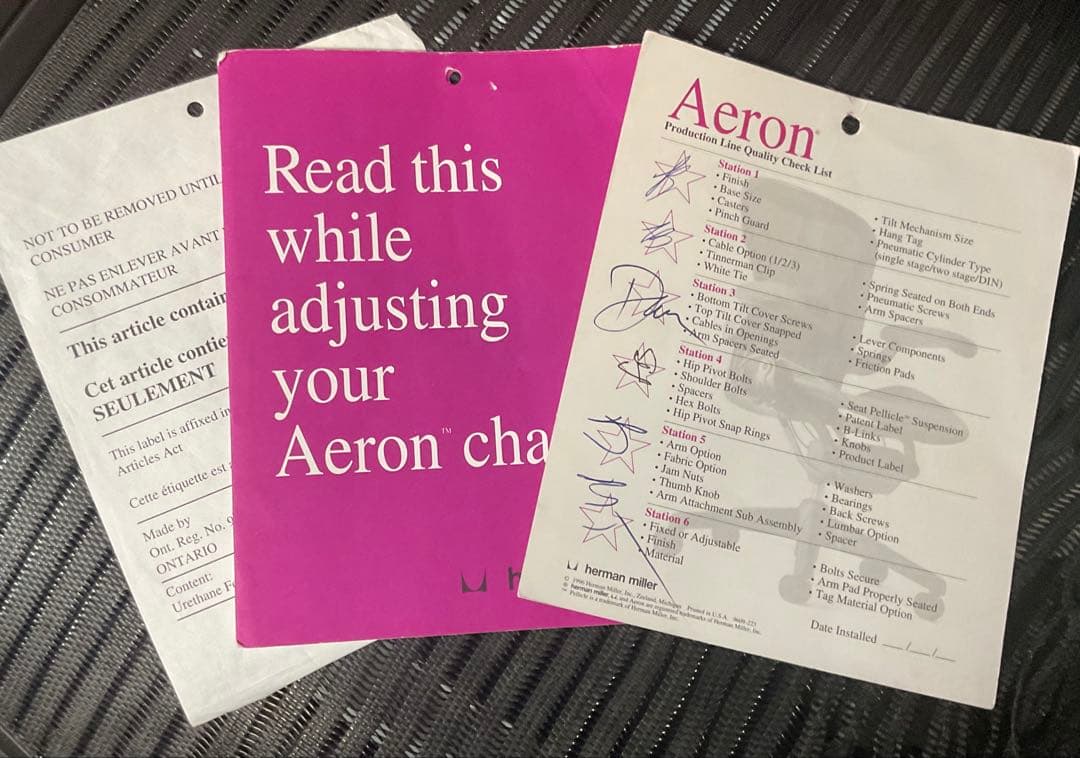 NOT TO BE REMOVED UNTIL
CONSUMER
NE PAS ENLEVER AVANT
CONSOMMATEUR
This article contain
Cet article contie
SEULEMENT
This label is affixed in
Articles Act
Cette étiquette est
Made by
Ont. Reg. No. 9
ONTARIO
Content:
Urethane F
Read this
while
adjusting
your
Aeron™ cha
Aeron®
Production Line Quality Check List
Station 1
• Finish
• Base Size
• Casters
• Pinch Guard
• Tilt Mechanism Size
• Hang Tag
• Pneumatic Cylinder Type
(single stage/two stage/DIN)
Station 2
• Cable Option (1/2/3)
• Tinnerman Clip
• White Tie
• Spring Seated on Both Ends
• Pneumatic Screws
• Arm Spacers
Station 3
• Bottom Tilt Cover Screws
• Top Tilt Cover Snapped
• Cables in Openings
• Arm Spacers Seated
• Lever Components
• Springs
• Friction Pads
Station 4
• Hip Pivot Bolts
• Shoulder Bolts
• Spacers
• Hex Bolts
• Hip Pivot Snap Rings
• Seat Pellicle™ Suspension
• Patent Label
• B-Links
• Knobs
• Product Label
Station 5
• Arm Option
• Fabric Option
• Jam Nuts
• Thumb Knob
• Arm Attachment Sub Assembly
• Washers
• Bearings
• Back Screws
• Lumbar Option
• Spacer
Station 6
• Fixed or Adjustable
• Finish
• Material
• Bolts Secure
• Arm Pad Properly Seated
• Tag Material Option
herman miller
© 1996 Herman Miller, Inc., Zeeland, Michigan Printed in U.S.A.
® herman miller, and Aeron are registered trademarks of Herman Miller, Inc.
™ Pellicle is a trademark of Herman Miller, Inc.
Date Installed __/__/__